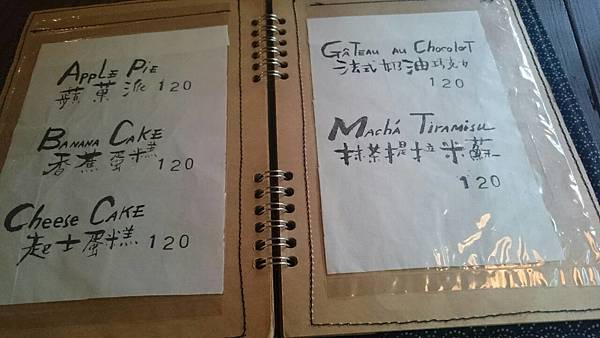 Apple Pie
蘋菓派 120
Banana Cake
香蕉蛋糕 120
Cheese Cake
起士蛋糕 120
Gâteau au Chocolot
法式奶油巧克力
120
Machá Tiramisu
抹茶提拉米蘇
120